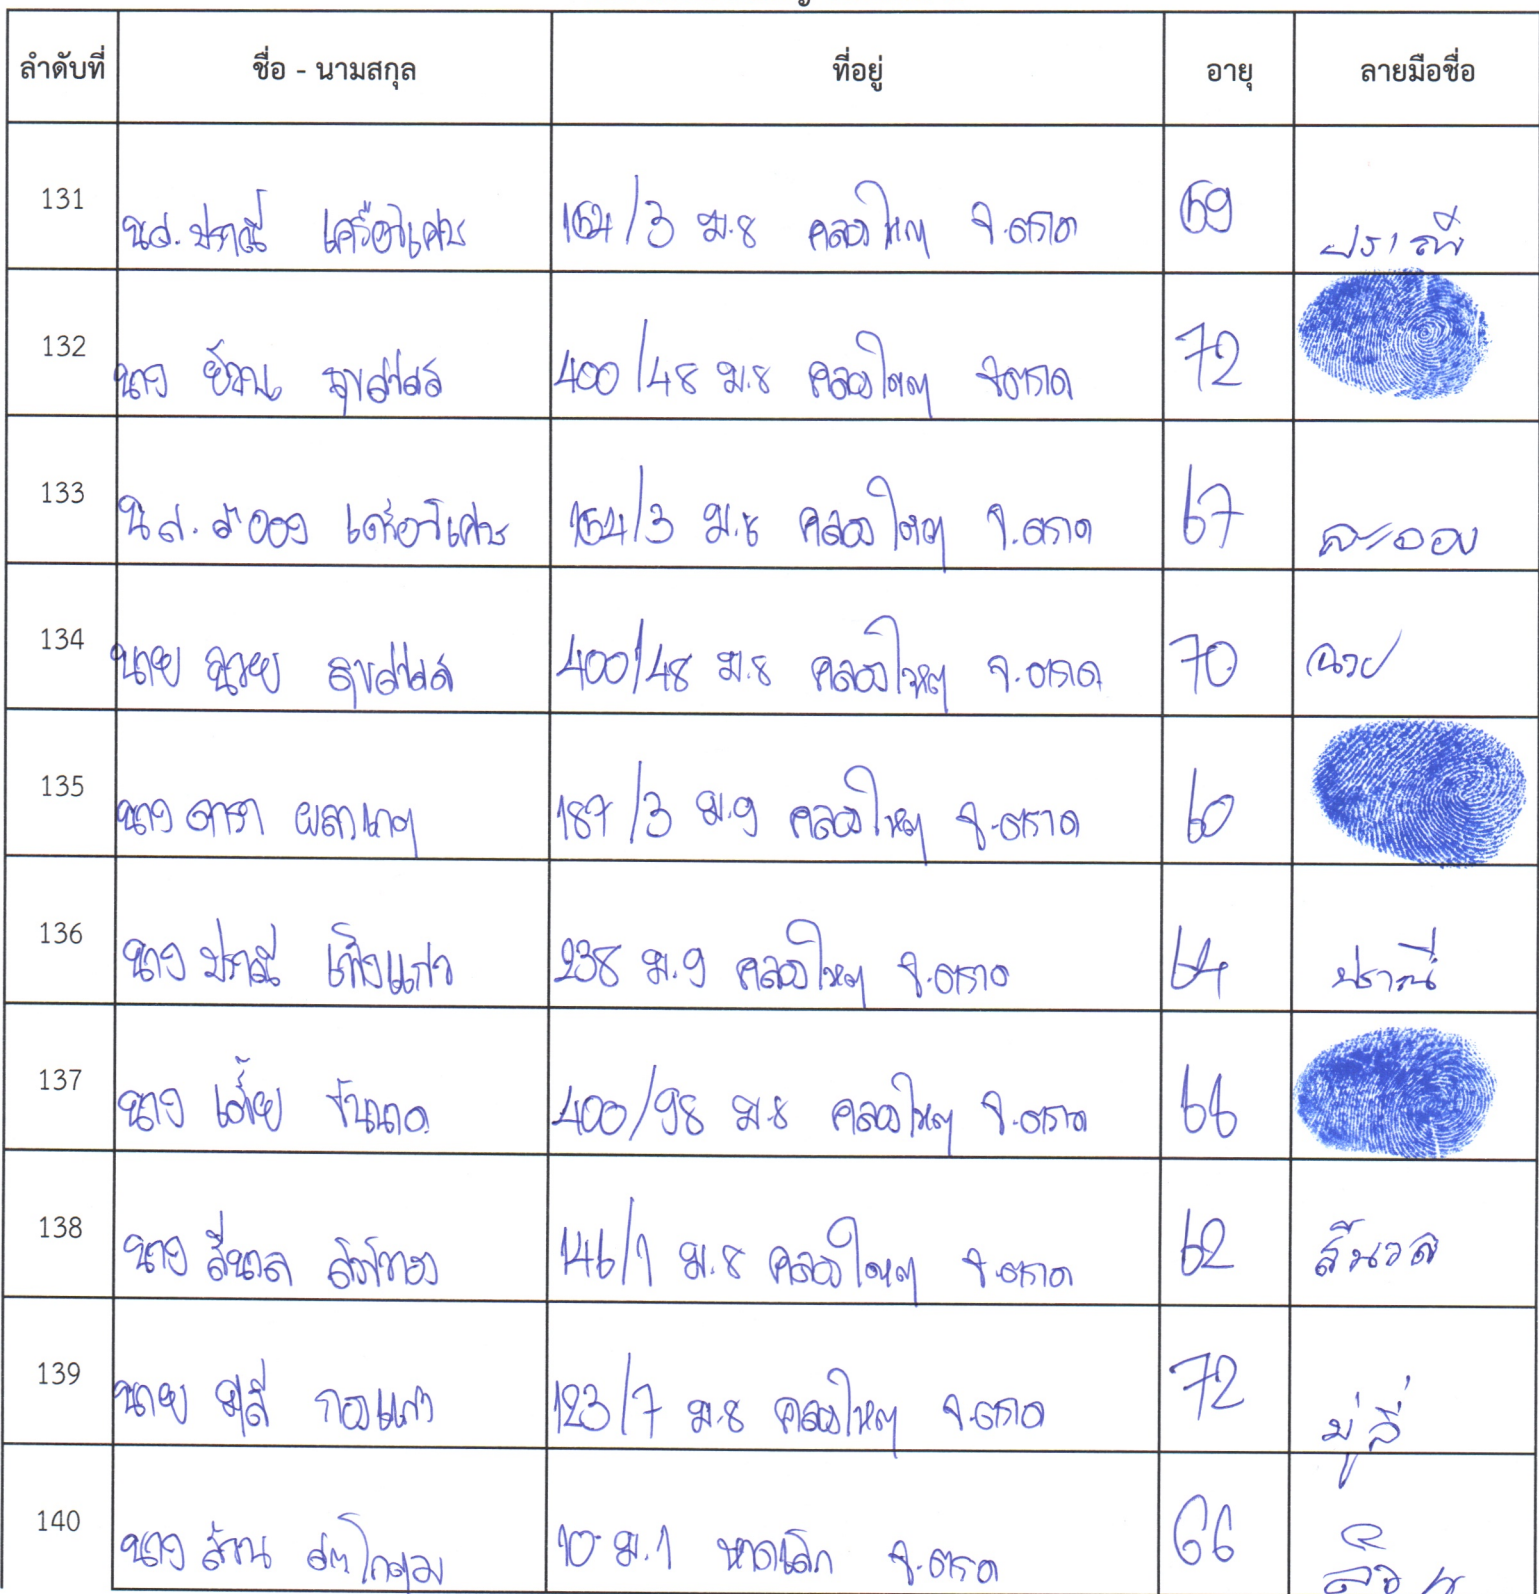 ลำดับที่ ชื่อ - นามสกุล ที่อยู่ อายุ ลายมือชื่อ
131 นส. ปราณี เครือวิเศษ 164/3 ม.8 คลองใหญ่ จ.ตราด 69 ปราณี
132 นาง 400/48 ม.8 คลองใหญ่ จ.ตราด 72
133 น.ส. ละออง เครือวิเศษ 164/3 ม.8 คลองใหญ่ จ.ตราด 67 ละออง
134 นาย ฉวย 400/48 ม.8 คลองใหญ่ จ.ตราด 70 ฉวย
135 นาง 187/3 ม.9 คลองใหญ่ จ.ตราด 60
136 นาง ปราณี 238 ม.9 คลองใหญ่ จ.ตราด 64 ปราณี
137 นาง 400/98 ม.8 คลองใหญ่ จ.ตราด 66
138 นาง สีนวล 146/1 ม.8 คลองใหญ่ จ.ตราด 62 สีนวล
139 นาย มู่ลี่ กองแก้ว 123/7 ม.8 คลองใหญ่ จ.ตราด 72 มู่ลี่
140 นาง 10 ม.1 หาดเล็ก จ.ตราด 66